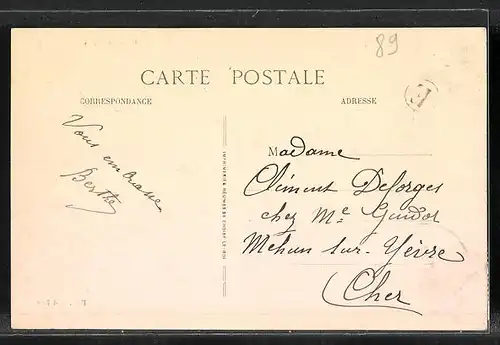 89
CARTE POSTALE
CORRESPONDANCE
ADRESSE
E
Vous embrasse
Berthe
Madame
Climent Deforges
chez Me Guidot
Mehun sur-Yèvre
Cher